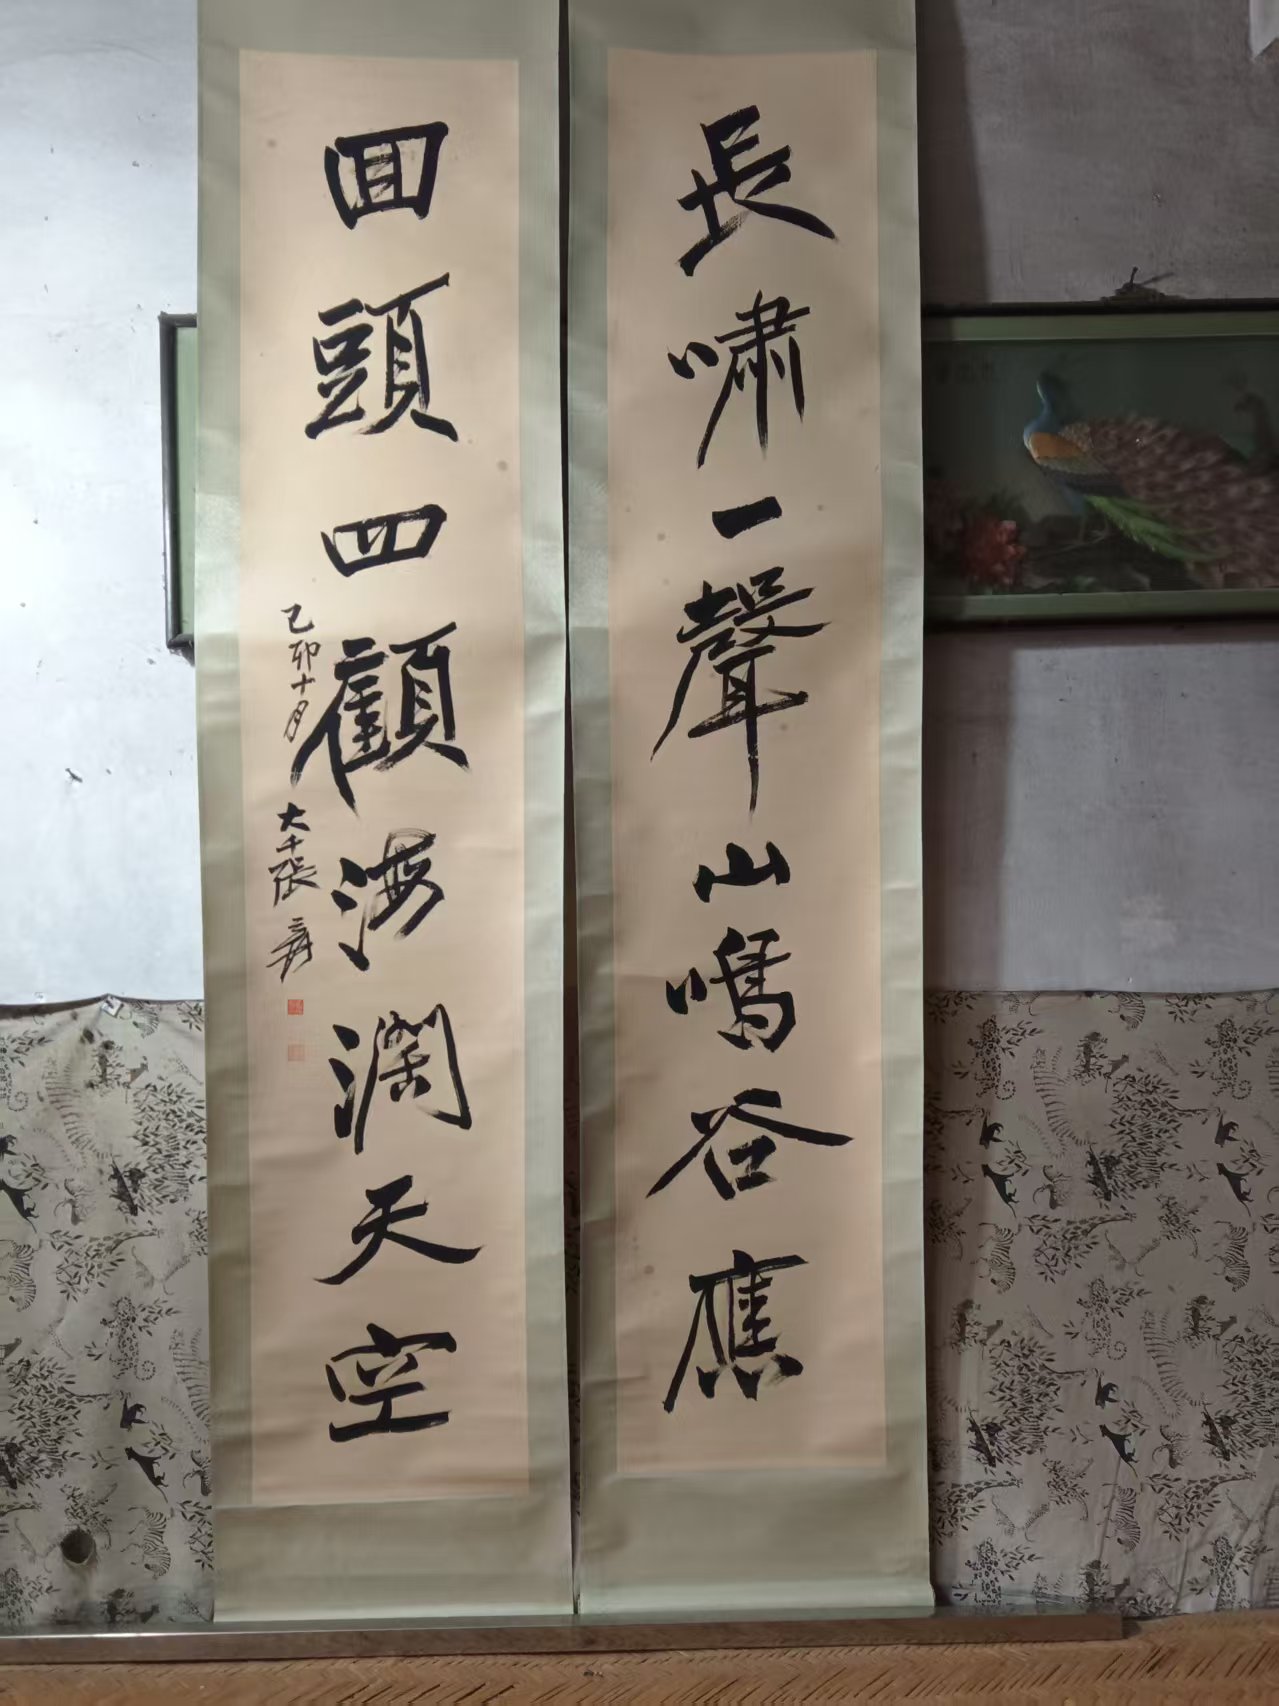 長嘯一聲山鳴谷應
回頭四顧海濶天空
己卯十月
大千張爰